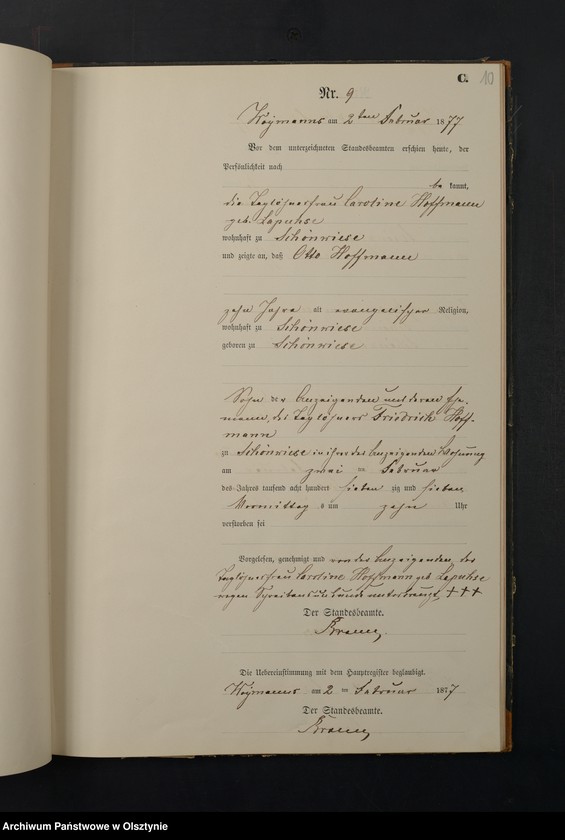 C. 10
Nr. 9
Weÿmanns am 2ten Februar 1877
Vor dem unterzeichneten Standesbeamten erschien heute, der
Persönlichkeit nach
be kannt,
die Taglöhnerfrau Caroline Hoffmann
geb. Lapuhse
wohnhaft zu Schönwiese
und zeigte an, daß Otto Hoffmann
zehn Jahre alt evangelischer Religion,
wohnhaft zu Schönwiese
geboren zu Schönwiese
Sohn der Anzeigenden und deren Ehe-
mann, des Taglöhners Friedrich Hoff-
mann
zu Schönwiese in ihrer des Anzeigenden Wohnung
am zwei ten Februar
des Jahres tausend acht hundert sieben zig und sieben
Vormittag s um zehn Uhr
verstorben sei
Vorgelesen, genehmigt und von der Anzeigenden, der
Taglöhnerfrau Caroline Hoffmann geb Lapuhse
wegen Schreibensunkunde unterkreuzt, +++
Der Standesbeamte.
Die Uebereinstimmung mit dem Hauptregister beglaubigt.
Weÿmanns am 2 ten Februar 1877
Der Standesbeamte.
Archiwum Państwowe w Olsztynie